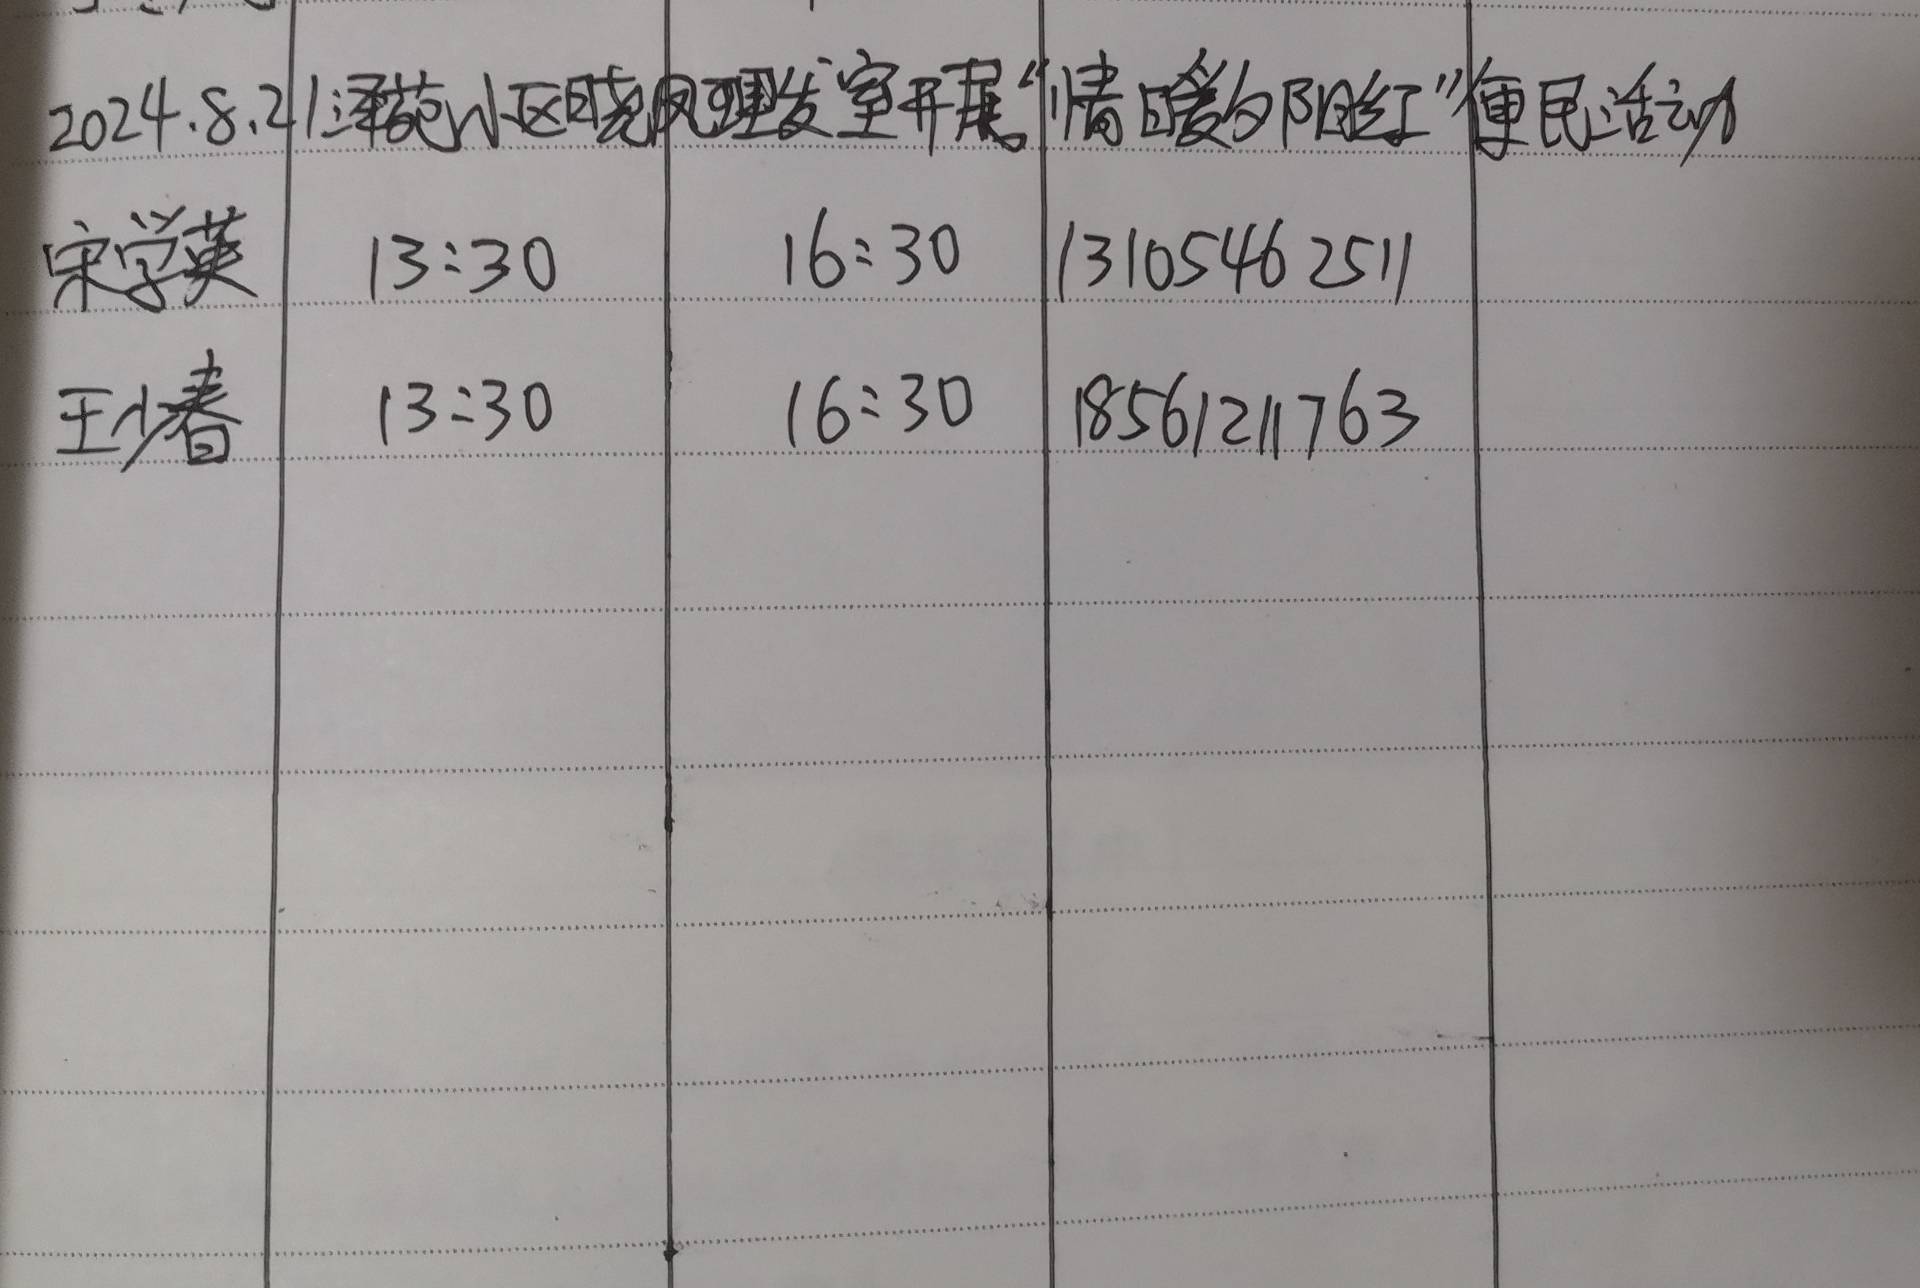 2024.8.21泽苑小区晓风理发室开展“情暖夕阳红”便民活动
宋学英 13:30 16:30 13105462511
王少春 13:30 16:30 18561211763